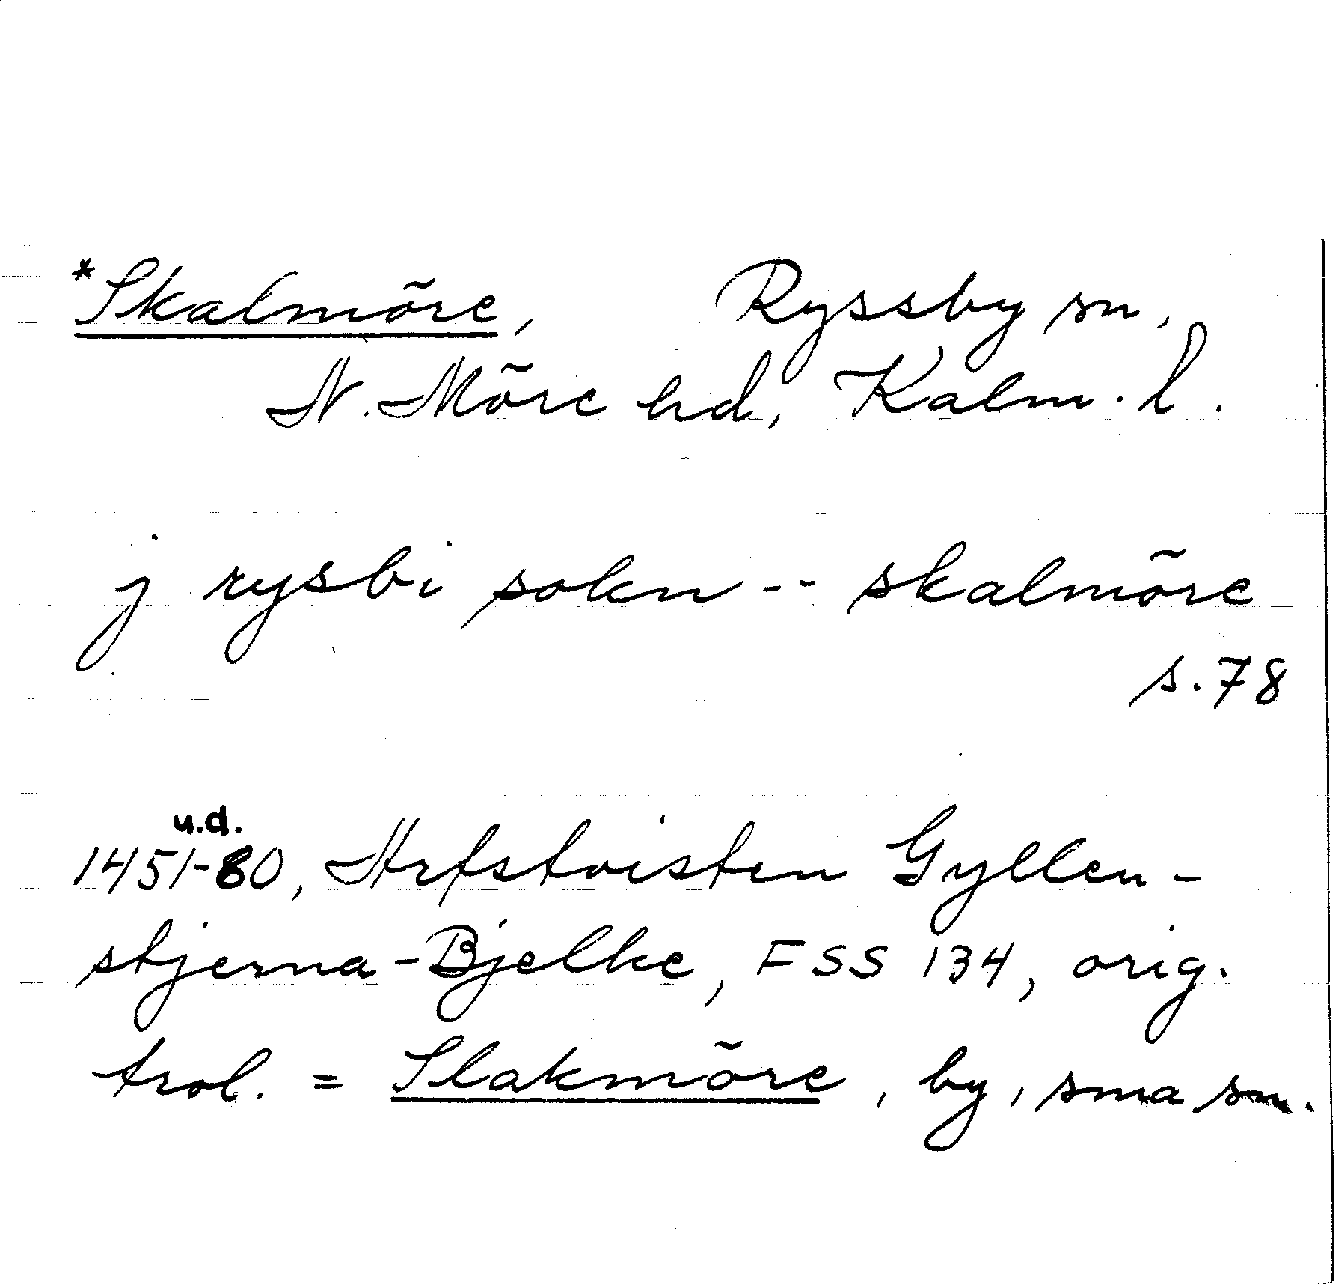 *Skalmöre, Ryssby sn,
N. Möre hd, Kalm. l.
j rysbi sokn -- skalmöre
s. 78
u.d.
1451-80, Arfstvisten Gyllen-
stjerna-Bjelke, FSS 134, orig.
trol. = Slakmöre, by, sma sn.